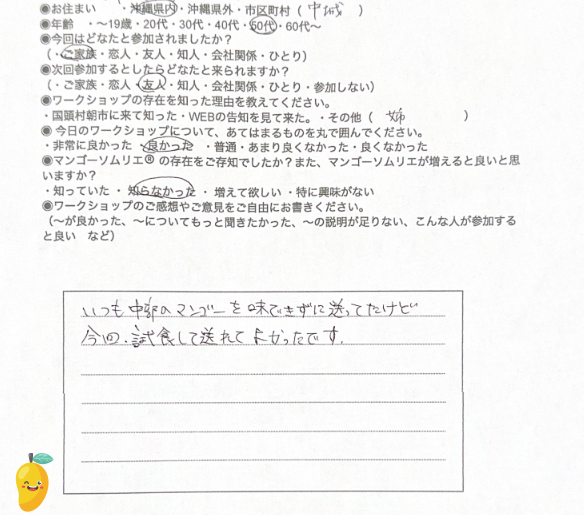 ◉お住まい ・沖縄県内・沖縄県外・市区町村（ 中城 ）
◉年齢 ・～19歳・20代・30代・40代・50代・60代～
◉今回はどなたと参加されましたか？
（・ご家族・恋人・友人・知人・会社関係・ひとり）
◉次回参加するとしたらどなたと来られますか？
（・ご家族・恋人・友人・知人・会社関係・ひとり・参加しない）
◉ワークショップの存在を知った理由を教えてください。
・国頭村朝市に来て知った・WEBの告知を見て来た。・その他（ 姉 ）
◉ 今日のワークショップについて、あてはまるものを丸で囲んでください。
・非常に良かった ・良かった ・普通・あまり良くなかった・良くなかった
◉マンゴーソムリエ® の存在をご存知でしたか？また、マンゴーソムリエが増えると良いと思
いますか？
・知っていた ・ 知らなかった ・ 増えて欲しい ・特に興味がない
◉ワークショップのご感想やご意見をご自由にお書きください。
（～が良かった、～についてもっと聞きたかった、～の説明が足りない、こんな人が参加する
と良い など）
いつも中部のマンゴーを味できずに送ってたけど
今回、試食して送れてよかったです.